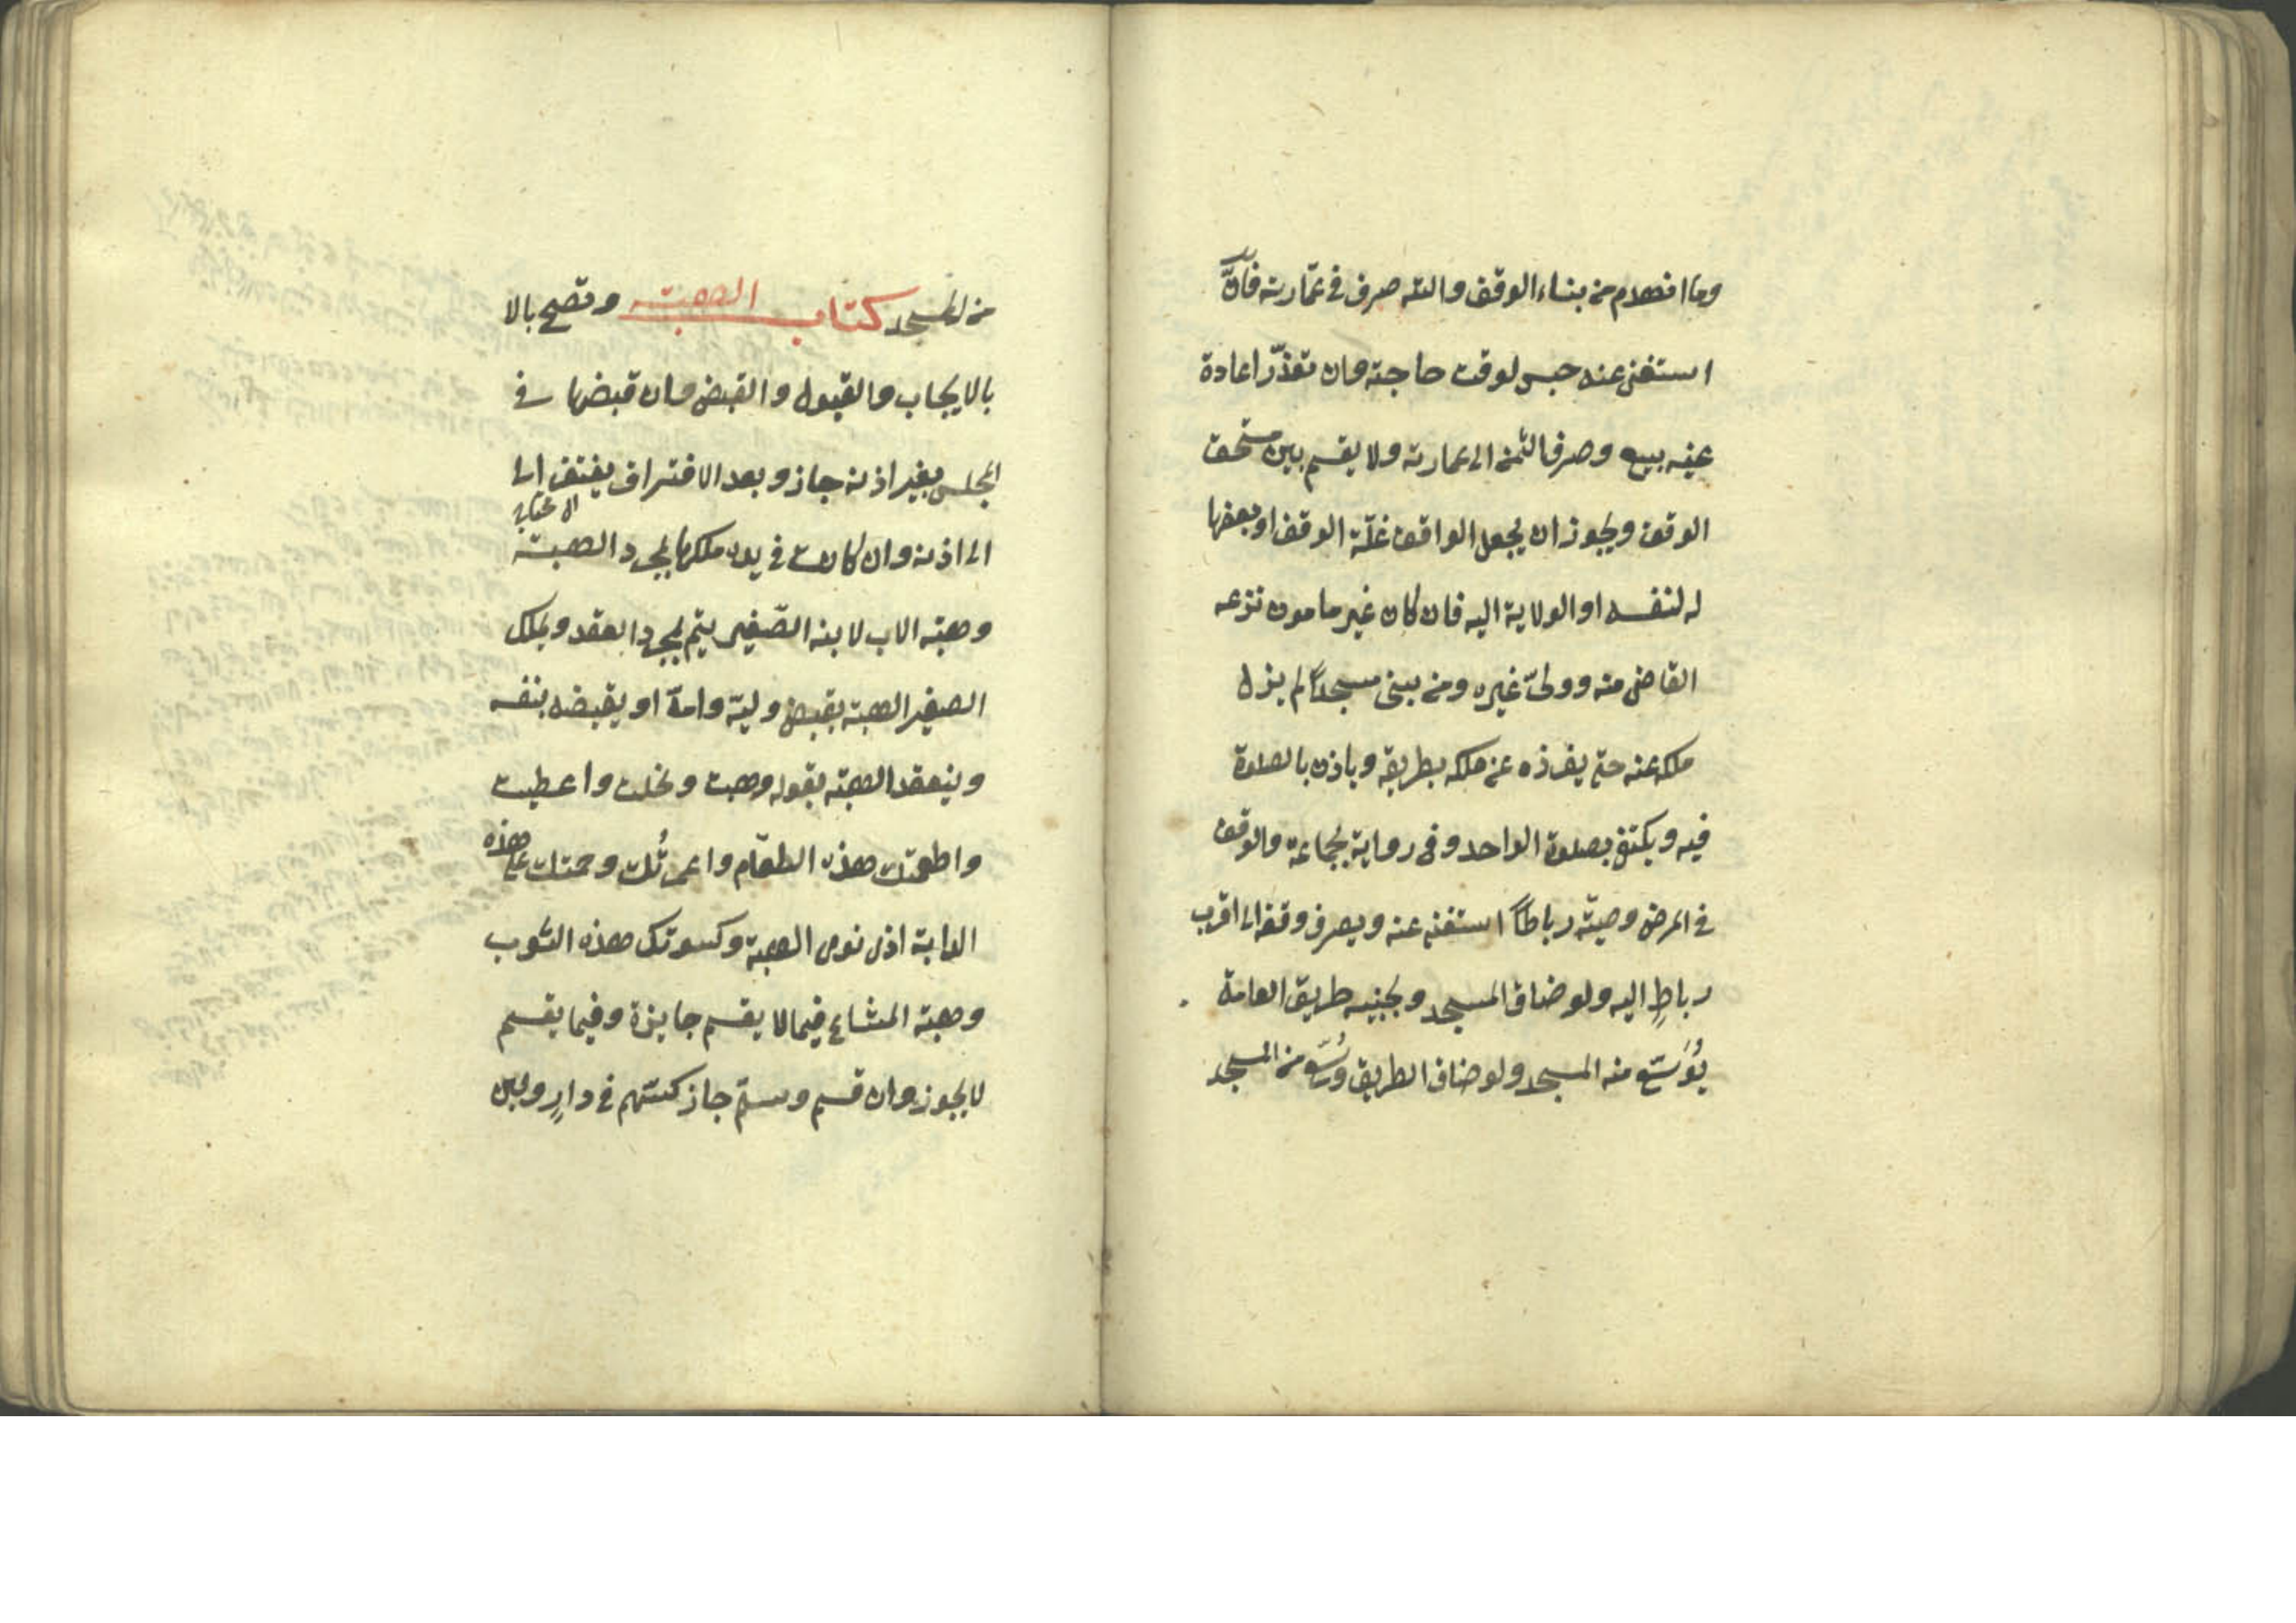 وما انهدم من بناء الوقف والته صرف في عمارته فان
استغنى عنه حبس لوقت حاجته وان تعذّر اعادة
عينه بيع وصرف الثمن الى عمارته ولا يقسم بين مستحق
الوقف ويجوز ان يجعل الواقف غلّة الوقف او بعضها
له لنفسه او الولاية اليه فان كان غير مامون نزعه
القاضى منه وولىّ غيره ومن بنى مسجداً لم يزل
ملكه عنه حتى يفرزه عن ملكه بطريقه وياذن بالصلوة
فيه ويكتفى بصلوة الواحد وفى رواية بجاعة والوقف
في المرض وصيّة رباطاً استغنى عنه ويصرف وقفه الى اقرب
رباطٍ اليه ولو ضاق المسجد وبجنبه طريق العامة
يُوَسّع منه المسجد ولو ضاق الطريق وُسّع من المسجد
من المسجد كتاب الهبة وتصح بالا
بالايجاب والقبول والقبض وان قبضها في
المجلس بغير اذنه جاز وبعد الافتراق يفتقر الى
الى اذنه وان كانت في يده ملكها بمجرد الهبة
وهبة الاب لابنه الصّغير يتم بمجرد العقد ويملك
الصغير الهبة بقبض وليّه وامّه او يقبضه بنفسه
وينعقد الهبة بقوله وهبت ونحلت واعطيت
واطعمتك هذه الطعام واعمرتُك وحملتك على هذه
الدابة اذا نوى الهبة وكسوتك هذه الثوب
وهبة المشاع فيما لا يقسم جايزة وفيما يقسم
لا يجوز وان قسم وسلّم جاز كسهم في دارٍ ولبن